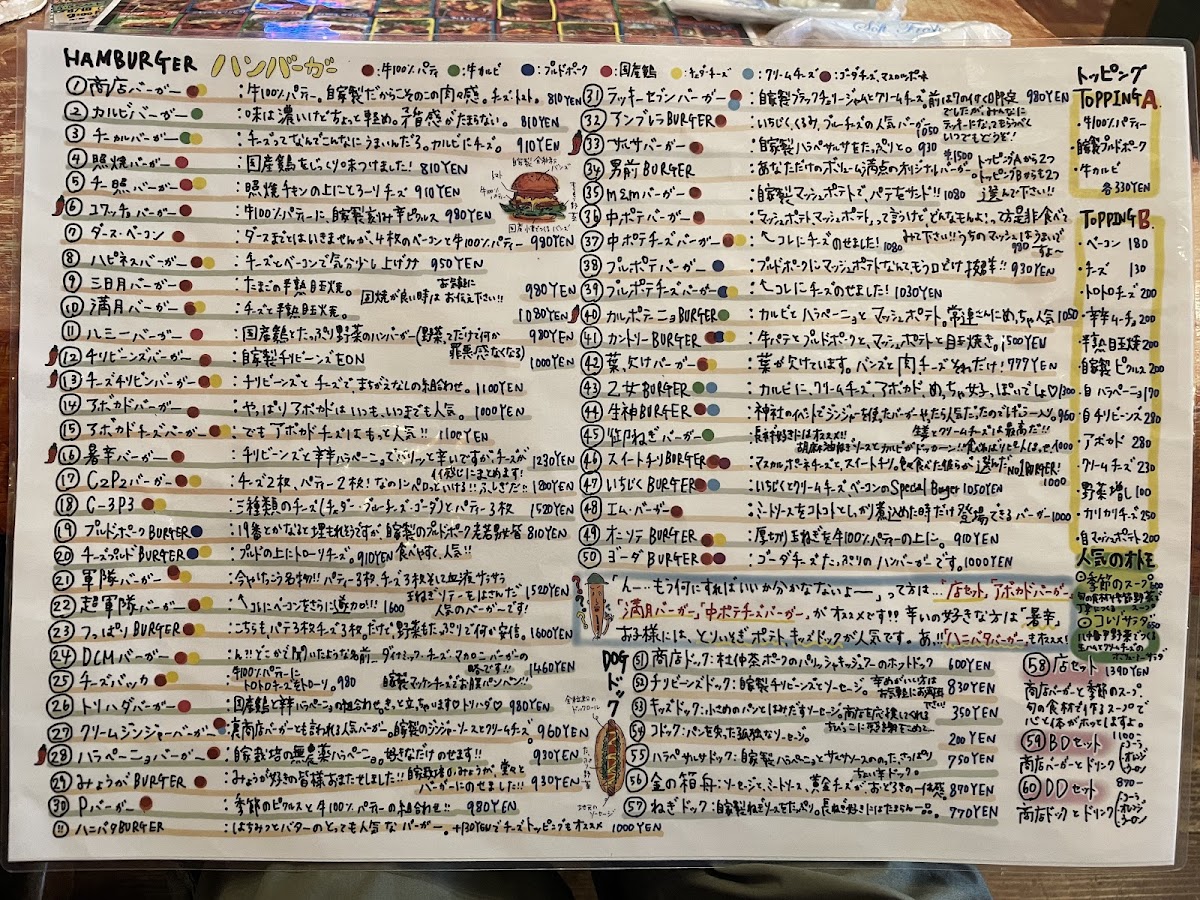 HAMBURGER ハンバーガー
牛100%パティ 牛カルビ プルドポーク 国産鶏 チェダーチーズ クリームチーズ ゴーダチーズ、マスカルポーネ
① 商店バーガー :牛100%パテー。自家製だからこそのこの肉々感。チーズ、トマト。 810YEN
② カルビバーガー :味は濃いけどちょっと軽め。矛盾感がたまらない。 810YEN
③ チーカルバーガー :チーズってなんでこんなにうまいんだろ。カルビにチーズ。 910YEN
④ 照焼バーガー :国産鶏をじっくり味つけました! 810YEN
⑤ チー照バーガー :照焼チキンの上にとろーりチーズ 910YEN
⑥ コワッチョバーガー :牛100%パテーに、自家製刻み辛ピクルス 980YEN
⑦ ダース・ベーコン :ダースまではいきませんが、4枚のベーコンと牛100%パティー 980YEN
⑧ ハピネスバーガー :チーズとベーコンで気分少し上げ⤴ 950YEN
⑨ 三日月バーガー :たまごの半熟目玉焼。 固焼が良い時はお気軽にお伝え下さい!! 980YEN
⑩ 満月バーガー :チーズと半熟目玉焼。 1080YEN
⑪ ルミーバーガー :国産鶏とたっぷり野菜のハンバーガー(野菜ってだけで何か罪悪感なくなる) 980YEN
⑫ チリビーンズバーガー :自家製チリビーンズをON 1000YEN
⑬ チーズチリビンバーガー :チリビーンズとチーズでまちがえなしの組合わせ。1100YEN
⑭ アボカドバーガー :やっぱりアボカドはいつも、いつまでも人気。 1000YEN
⑮ アボカドチーズバーガー :でもアボカドチーズはもっと人気!! 1100YEN
⑯ 暑辛バーガー :チリビーンズと辛辛ハラペーニョでバリッと辛いですが、チーズがイイ感じにまとめます! 1230YEN
⑰ C2P2バーガー :チーズ2枚、パティー2枚!なのにペロっといける!!ふしぎだ!! 1200YEN
⑱ C-3P3 :三種類のチーズ(チェダー・ブルーチーズ・ゴーダ)とパテー3枚 1520YEN
⑲ プルドポークBURGER :19番とかなると埋もれそうですが、自家製のプルドポーク老若男女皆 810YEN
⑳ チーズプルドBURGER :プルドの上にトローリチーズ。910YEN 食べやすく、人気!!
㉑ 軍隊バーガー :今やけんごう名物!!パティー3枚、チーズ3枚そして血液サラサラ玉ねぎソテーをはさんだ人気のバーガーです! 1520YEN
㉒ 超軍隊バーガー :↖コレにベーコンをさらに追加!! 1600
㉓ つっぱりBURGER :こちらも、パテ3枚チーズ3枚、だけど野菜もたっぷりで何か安心。1600YEN
㉔ DCMバーガー :ん!!どこかで聞いたような名前…ダイナミック、チーズ、マカロニバーガーの略です!! 1460YEN
㉕ チーズバッカ :牛100%パテーにトロトロチーズをトローリ。980 自家製マッカンチーズでお腹パンパン!!
㉖ トリハダバーガー :国産鶏と辛辛ハラペーニョの組合わせ。きっと立っちゃいます♡トリハダ♡ 980YEN
㉗ クリームジンジャーバーガー :裏商店バーガーとも言われる人気バーガー。自家製のジンジャーソースとクリームチーズ。 960YEN
㉘ ハラペーニョバーガー :自家栽培の無農薬ハラペーニョ。好きなだけのせます!! 930YEN
㉙ みょうがBURGER :みょうが好きの皆様おまたせしました!!自家栽培のみょうが、堂々とバーガーにのせました!! 930YEN
㉚ Pバーガー :季節のピクルスと牛100%パテーの組合わせ!! 980YEN
!! ハニバタBURGER :はちみつとバターのとっても人気なバーガー。+130YENでチーズトッピングもオススメ 1000YEN
㉛ ラッキーセブンバーガー :自家製ブラックチェリージャムとクリームチーズ 前は7の付く日限定でしたが、みんなにラッキーになってもらうべくいつでもどうぞ! 980YEN
32 アンブレラBURGER :いちじく、くるみ、ブルーチーズの人気バーガー 1050
㉝ サルサバーガー :自家製ハラペサルサをたっぷりと。930
㉞ 男前BURGER :あなただけのボリューム満点のオリジナルバーガー ¥1500 トッピングAから2つ トッピングBからも2つ 選んで下さい!!
㉟ m&mバーガー :自家製マッシュポテトで、パテをサンド!! 1080
㊱ 中ポテバーガー :マッシュポテトマッシュポテト。って言うけどどんなもんよ!って方是非食べてみて下さい!!うちのマッシュはうまいですよ~ 980
㊲ 中ポテチーズバーガー :↖コレにチーズのせました! 1080
㊳ プルポテバーガー :プルドポークにマッシュポテトなんてもうロどけ抜群!! 930YEN
㊴ プルポテチーズバーガー :↖コレにチーズのせました! 1030YEN
㊵ カルポテニョBURGER :カルビとハラペーニョとマッシュポテト。常連さんにめっちゃ人気 1050
㊶ カントリーBURGER :牛パテとプルドポークと、マッシュポテトと目玉焼き。1500YEN
㊷ 葉、欠けバーガー :葉が欠けています。バンズと肉チーズそれだけ! 777YEN
㊸ 乙女BURGER :カルビに、クリームチーズ、アボカド、めっちゃ女子っぽいでしょ♡ 1300
㊹ 生神BURGER :神社のイベントでジンジャーを使ったバーガーやったら人気だったのでレギュラー入り。960 生姜とクリームチーズは最高だ!!
㊺ 焔ねぎバーガー :長ネギ好きにはオススメ!! 1000
㊻ スイートチリBURGER :マスカルポーネチーズと、スイートチリ。 NO1BURGER! 1000
㊼ いちじくBURGER :いちじくとクリームチーズ ベーコンのSpecial Buger 1050YEN
㊽ エム・バーガー :ミートソースをコトコトしっかり煮込めた時だけ登場できるバーガー 1000
㊾ オニソテBURGER :厚切り玉ねぎを牛100%パテーの上に。910YEN
㊿ ゴーダBURGER :ゴーダチーズたっぷりのハンバーガーです。1000YEN
「ん…もう何にすればいいか分かなないよー」って方は…「店セット」「アボカドバーガー」
「満月バーガー」「中ポテチーズバーガー」がオススメです!!辛いの好きな方は「暑辛」
お子様には、とりいそぎポテト、キッズドックが人気です。あ!!「ハニバタバーガー」もオススメ!
DOG ドック
51 商店ドック:杜仲茶ポークのパリッシャキッジュワーのホットドック 600YEN
52 チリビーンズドック:自家製チリビーンズとソーセージ。辛めがいい方はお気軽にお声掛下さい! 830YEN
53 キッズドック:小さめのパンとはみだすソーセージ。 350YEN
54 コドック:パンを失った孤独なソーセージ。 200YEN
55 ハラペサルサドック:自家製ハラペーニョとサルサソースの、たっぷり 750YEN
56 金の箱舟:ソーセージと、ミートソース、黄金チーズが、おどろきの一体感 870YEN
57 ねぎドック:自家製ねぎソースをたっぷり。長ねぎ好きにはたまらん一品。 770YEN
トッピング
TOPPING A
・牛100%パティー
・自家製プルドポーク
・牛カルビ
各330YEN
TOPPING B
・ベーコン 180
・チーズ 130
・トロトロチーズ 200
・辛辛ミーチョ 200
・半熟目玉焼 200
・自家製ピクルス 200
・自ハラペーニョ 170
・自チリビーンズ 280
・アボカド 280
・クリームチーズ 230
・野菜増し 100
・カリカリチーズ 250
・自マッシュポテト 200
人気のオトモ
季節のスープ 600
コレ!サラダ 650
58 店セット 1390YEN
商店バーガーと季節のスープ。
旬の食材で作るスープで
心と体がホッとしますよ。
59 BDセット 1100-
商店バーガーとドリンク
コーラ
オレンジ
ウーロン
60 DDセット 870-
商店ドックとドリンク
コーラ
オレンジ
ウーロン